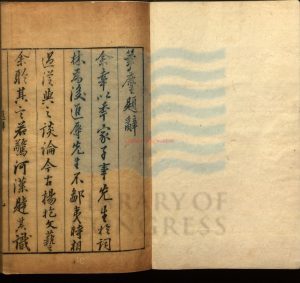 筆麈題辭
余幸以年家子事先生於詞
林為後進辱先生不鄙夷時相
過從與之談論今古揚扢文藝
余聆其言若驚河漢趨其識
LIBRARY OF
CONGRESS